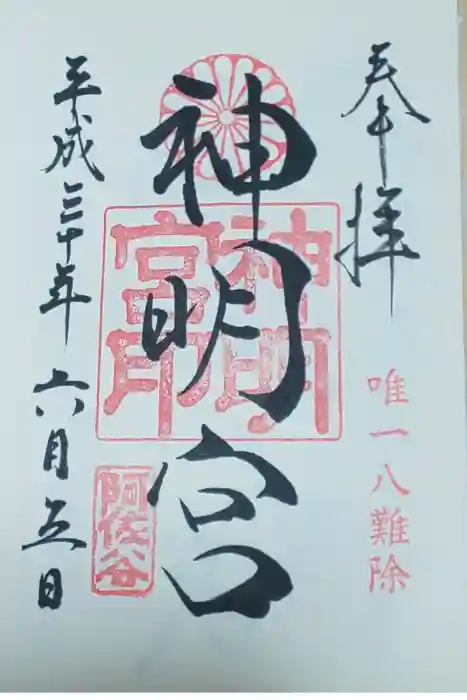 奉拝
唯一八難除
神明宮
神明宮印
平成三十年六月五日
阿佐谷